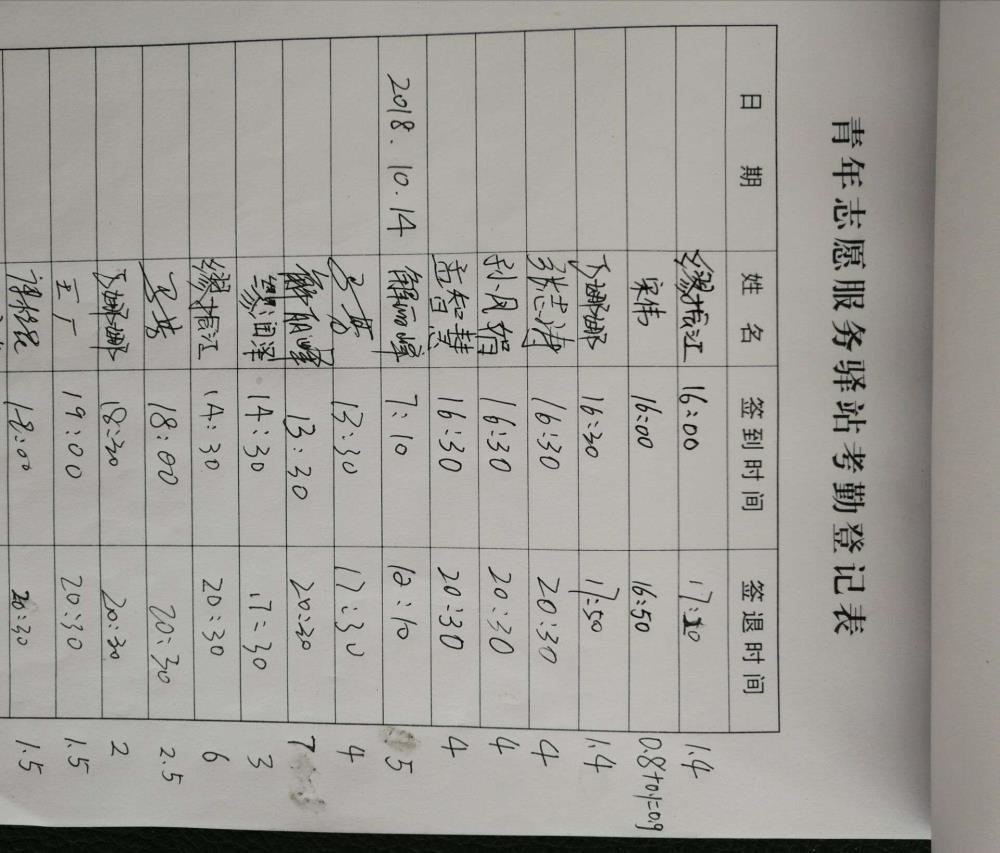 青年志愿服务驿站考勤登记表
日期 姓名 签到时间 签退时间
缪振江 16:00 17:20 1.4
宋伟 16:00 16:50 0.8+0.1=0.9
娜娜 16:30 17:50 1.4
张志涛 16:30 20:30 4
16:30 20:30 4
孟智慧 16:30 20:30 4
2018.10.14 解丽峰 7:10 12:10 5
13:30 17:30 4
解丽峰 13:30 20:30 7
缪润泽 14:30 17:30 3
缪振江 14:30 20:30 6
18:00 20:30 2.5
娜娜 18:30 20:30 2
王广 19:00 20:30 1.5
18:00 20:30 1.5